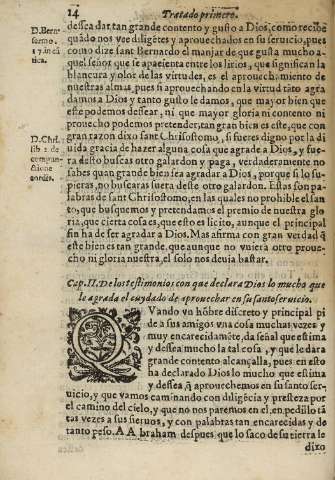 14
Tratado primero.
dessea dar tan grande contento y gusto a Dios, como recibe
D.Bern.
quãdo nos vee diligẽtes y aprouechados en su seruicio, pues
sermo.
como dize sant Bernardo el manjar de que gusta mucho a-
17.in cã
quel señor que se apacienta entre los lirios, que significan la
tica.
blancura y olor de las virtudes, es el aprouechamiento de
nuestras almas pues si aprouechando en la virtud tãto agra
damos a Dios y tanto gusto le damos, que mayor bien que
este podemos dessear, ni que mayor gloria ni contento ni
prouecho podemos pretender, tan gran bien es este, que con
D.Chri.
gran razon dixo sant Chrisostomo, si fueres digno por la di
lib 2 de
uida gracia de hazer alguna cosa que agrade a Dios, y fue-
compun
ra desto buscas otro galardon y paga, verdaderamente no
ctione
sabes quan grande bien sea agradar a Dios, porque si lo su-
cordis.
pieras, no buscaras fuera deste otro galardon. Estas son pa-
labras de sant Chrisostomo, en las quales no prohibe el san
to, que busquemos y pretendamos el premio de nuestra glo
ria, que cierta cosa es, que esto es licito, aunque el principal
fin ha de ser agradar a Dios. Mas afirma con gran verdad q̃
este bien es tan grande, que aunque no vuiera otro proue-
cho ni gloria nuestra, el solo nos deuia bastar.
Cap. II. De los testimonios con que declara Dios lo mucho que
le agrada el cuydado de aprouechar en su santo seruicio.
QVando vn hõbre discreto y principal pi
de a sus amigos vna cosa muchas vezes y
muy encarecidamẽte, da señal que estima
y dessea mucho la tal cosa, y que le dara
grande contento alcançalla, pues en esto
ha declarado Dios lo mucho que estima
y dessea, q̃ aprouechemos en su santo ser-
uicio, y que vamos caminando con diligẽcia y presteza por
el camino del cielo, y que no nos paremos en el, en pedillo tã
tas vezes a sus sieruos, y con palabras tan encarecidas y de
tanto peso. A Abraham despues que lo saco de su tierra le
dixo